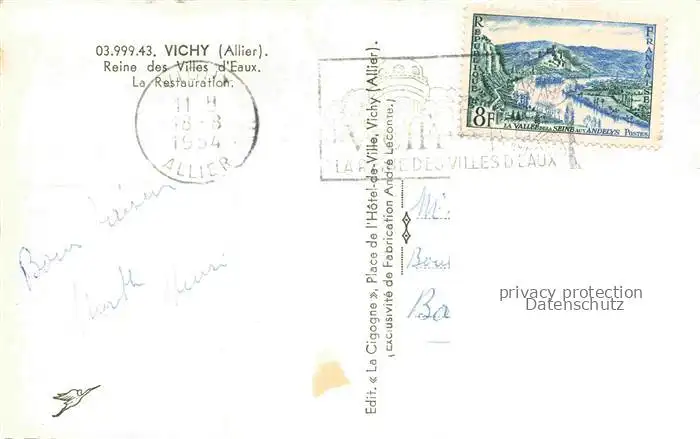 03.999.43. VICHY (Allier).
Reine des Villes d'Eaux.
La Restauration.
11 H
18-8
1954
ALLIER
LA REINE DES VILLES D'EAUX
REPUBLIQUE FRANCAISE
8F
LA VALLEE DE LA SEINE AUX ANDELYS POSTES
Edit. « La Cigogne », Place de l'Hôtel-de-Ville, Vichy (Allier).
(Exclusivité de Fabrication André Leconte.)
Bons
Henri
privacy protection
Datenschutz